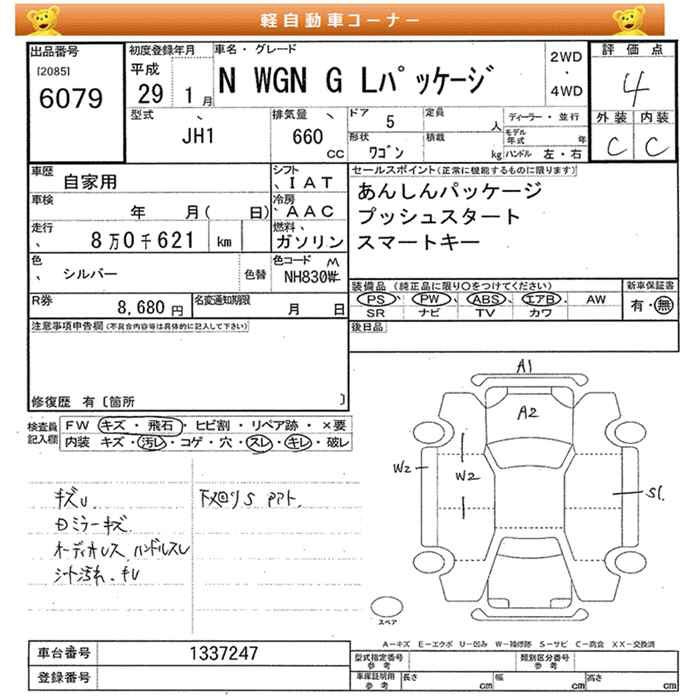 軽自動車コーナー
出品番号
[2085]
6079
初度登録年月
平成
29 1月
車名・グレード
N WGN G Lパッケージ
2WD
・
4WD
評価点
4
外装 内装
C C
型式
JH1
排気量
660
cc
ドア 5
定員
人
形状
ワゴン
積載
kg
ディーラー・並行
モデル年式
年
ハンドル 左・右
車歴
自家用
シフト
IAT
車検
年 月( 日)
冷房
AAC
走行
8万0千621 km
燃料
ガソリン
色
シルバー
色替
色コード M
NH830
R券
8,680円
名変通知期限
月 日
セールスポイント(正常に機能するものに限ります)
あんしんパッケージ
プッシュスタート
スマートキー
装備品(純正品に限り○をつけてください)
PS・PW・ABS・エアB・AW
SR ナビ TV カワ
新車保証書
有・無
後日品
注意事項申告欄(不具合内容等は具体的に記入して下さい)
修復歴 有[箇所 ]
検査員
記入欄
FW キズ・飛石・ヒビ割・リペア跡・×要
内装 キズ・汚レ・コゲ・穴・スレ・キレ・破レ
キズU
ミラーキズ
オーディオレス ハンドルスレ
シート汚れ・キレ
下廻りS
A1
A2
W2
W2
S1
スペア
A−キズ E−エクボ U−凹み W−補修跡 S−サビ C−腐食 XX−交換済
車台番号
1337247
登録番号
型式指定番号
参考
類別区分番号
参考
車庫証明用
参考
長さ
cm
幅
cm
高さ
cm